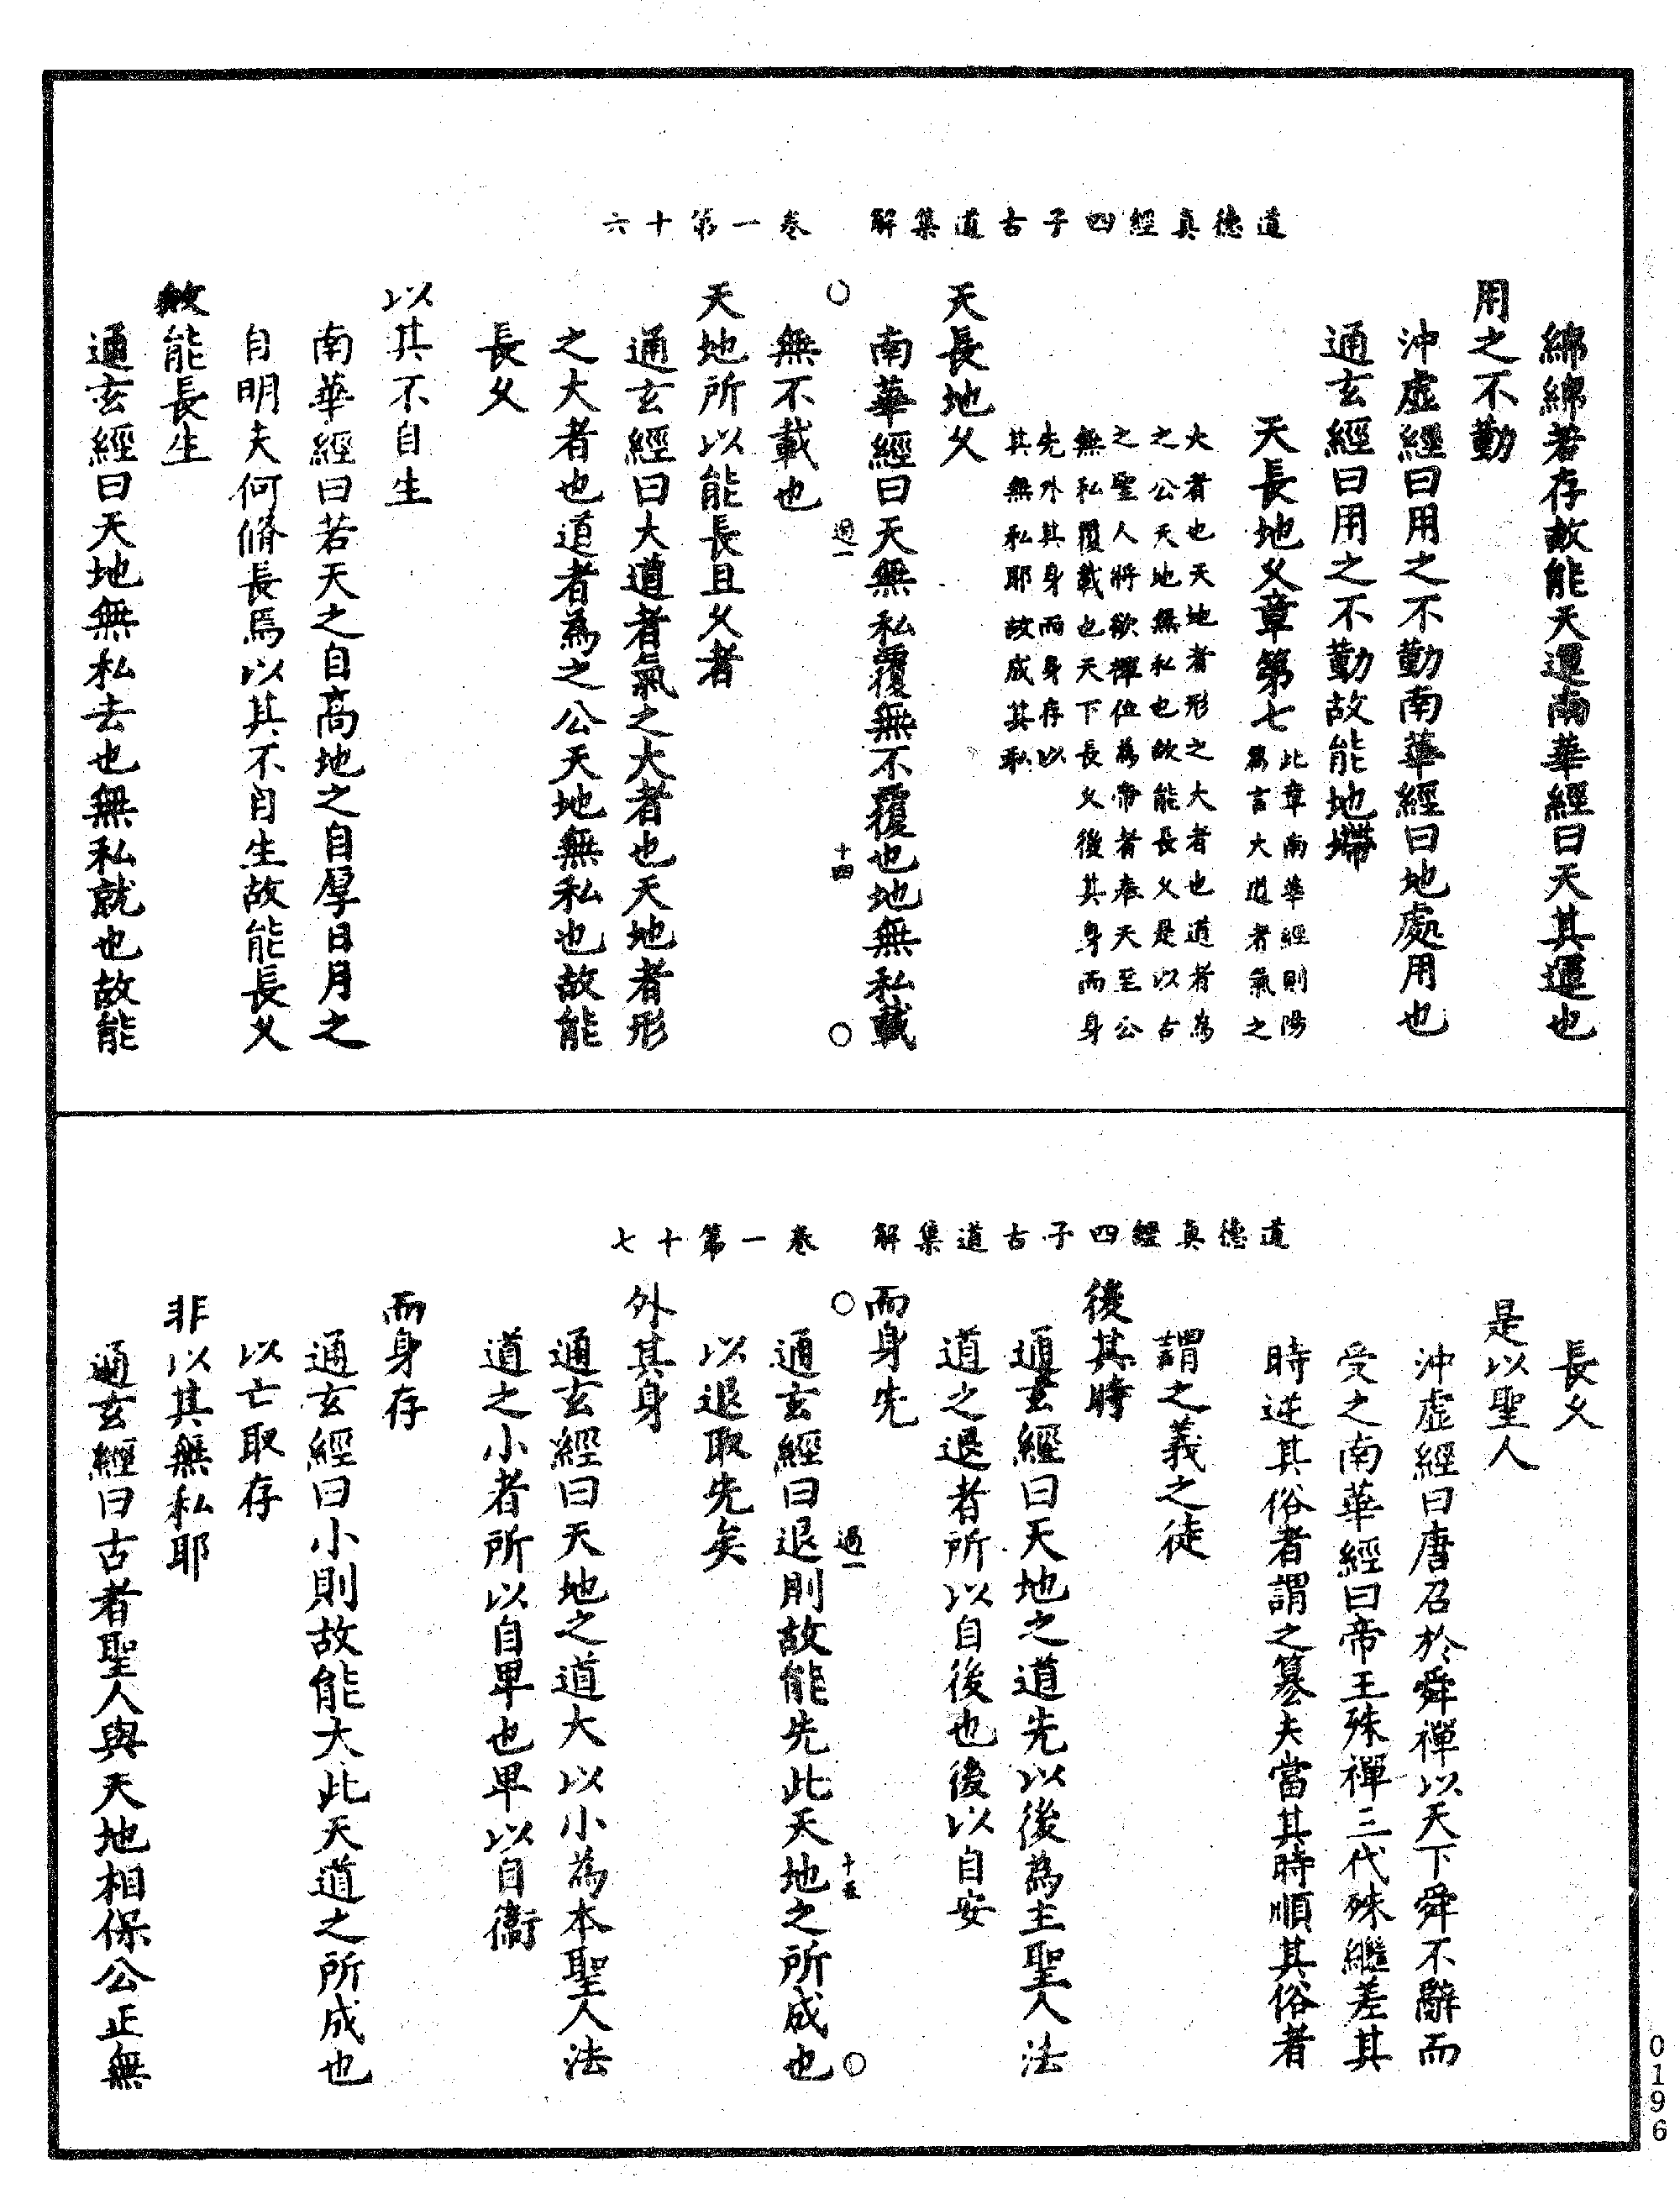 道德真經四子古道集解　卷一第十六
綿綿若存故能天運南華經曰天其運也
用之不勤
沖虛經曰用之不勤南華經曰地處用也
通玄經曰用之不勤故能地墆
天長地久章第七此章南華經則陽篇言大道者氣之
大者也天地者形之大者也道者為
之公天地無私也故能長久是以古
之聖人將欲禪位為帝者奉天至公
無私覆載也天下長久後其身而身
先外其身而身存以
其無私耶故成其私
天長地久
南華經曰天無私覆無不覆也地無私載
○　過一　十四　○
無不載也
天地所以能長且久者
通玄經曰大道者氣之大者也天地者形
之大者也道者為之公天地無私也故能
長久
以其不自生
南華經曰若天之自高地之自厚日月之
自明夫何脩長焉以其不自生故能長久
故能長生
通玄經曰天地無私去也無私就也故能
道德真經四子古道集解　卷一第十七
長久
是以聖人
沖虛經曰唐召於舜禪以天下舜不辭而
受之南華經曰帝王殊禪三代殊繼差其
時逆其俗者謂之篡夫當其時順其俗者
謂之義之徒
後其時
通玄經曰天地之道先以後為主聖人法
道之退者所以自後也後以自安
而身先
○　過一　十五　○
通玄經曰退則故能先此天地之所成也
以退取先矣
外其身
通玄經曰天地之道大以小為本聖人法
道之小者所以自卑也卑以自衞
而身存
通玄經曰小則故能大此天道之所成也
以亡取存
非以其無私耶
通玄經曰古者聖人與天地相保公正無
0196